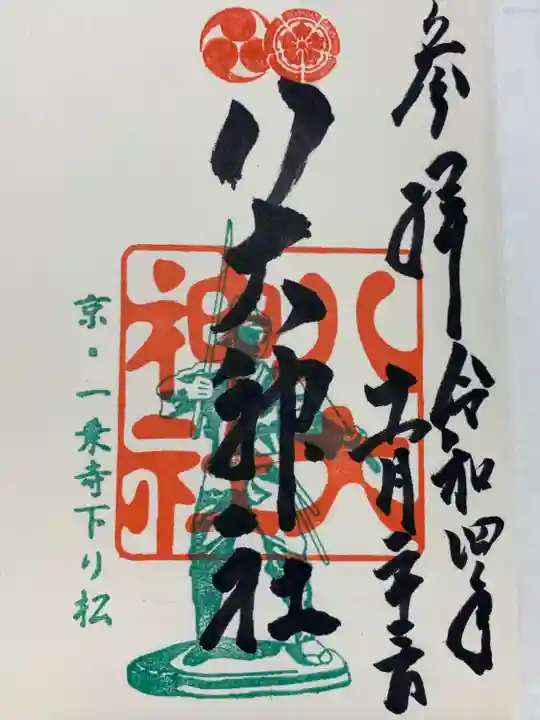 参拝 令和四年
十一月二十二日
八大神社
八大
神社
京・一乗寺下り松